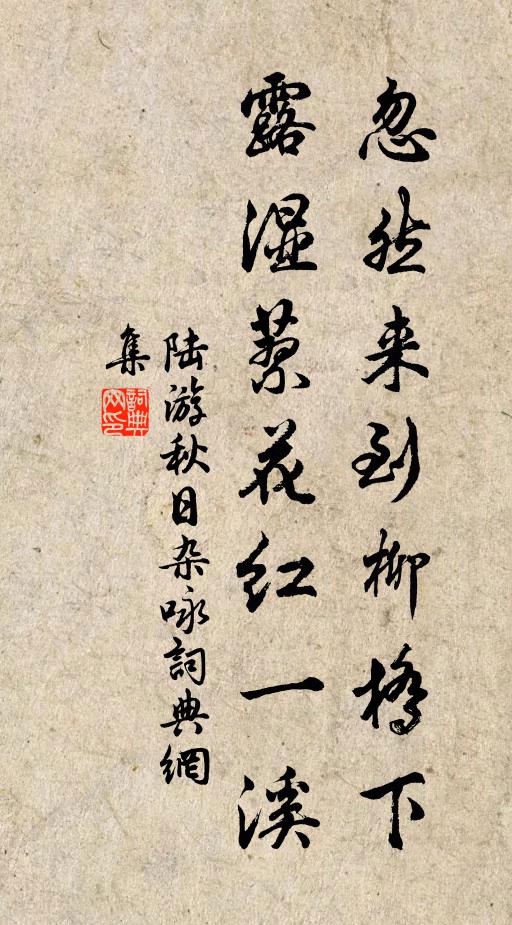 忽然来到柳桥下
露湿蓼花红一溪
陆游秋日杂咏詞典網
集
詞典
网印